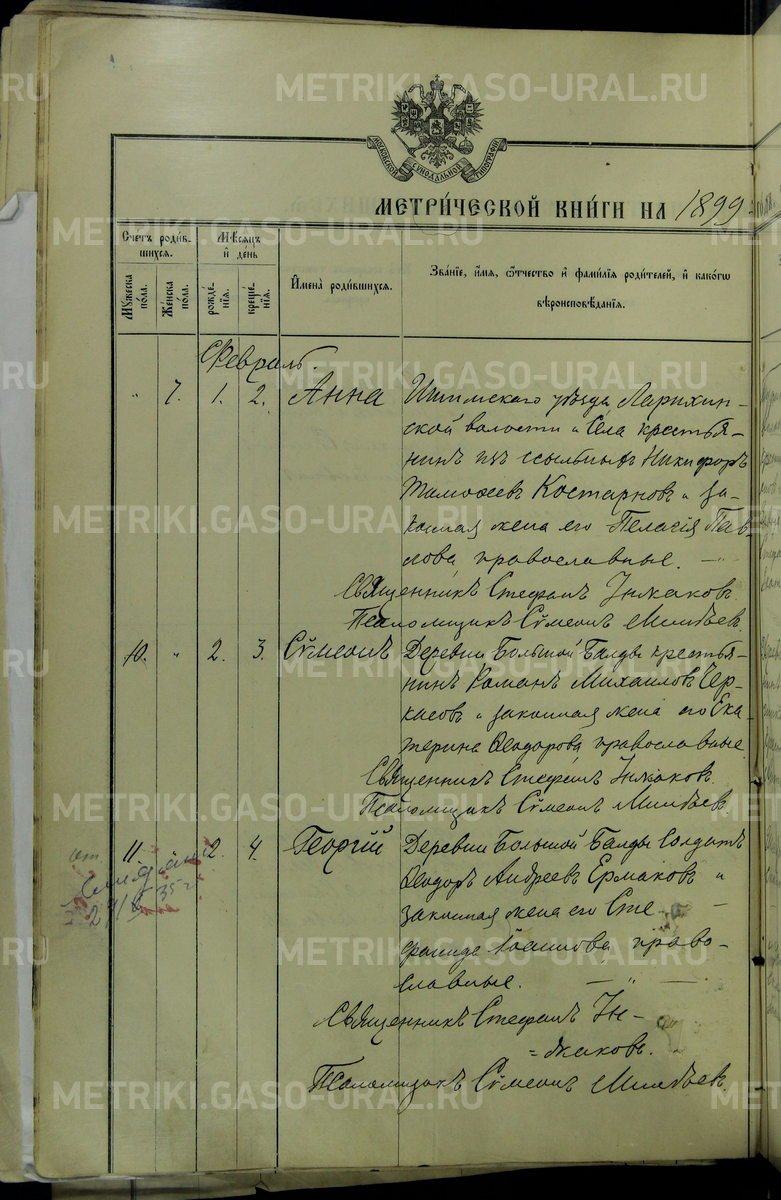 МОСКОВСКОЙ СѴНОДАЛЬНОЙ ТИПОГРАФІИ
МЕТРИ́ЧЕСКОЙ КНИ́ГИ НА 1899
Счетъ роди́вшихся.
Мꙋжеска по́ла.
Же́нска по́ла.
Мѣ́сяцъ и҆ де́нь
рожде́нїѧ.
креще́нїѧ.
И҆мена̀ роди́вшихся.
Зва́нїе, и҆́мѧ, ѻ҆́тчество и҆ фами́лїѧ роди́телей, и҆ како́гѡ
вѣроисповѣ́данїѧ.
Февраль.
" 7. 1. 2. Анна Ишимскаго уѣзда Ларихин-
ской волости и села крестья-
нинъ изъ ссыльныхъ Никифоръ
Тимоѳеевъ Костарновъ и за-
конная жена его Пелагія Пав-
лова, православные.
Священникъ Стефанъ
Псаломщикъ Сѵмеонъ
10. " 2. 3. Сѵмеонъ Деревни Большой Балды крестья-
нинъ Романъ Михаиловъ Чер-
касовъ и законная жена его Ека-
терина Ѳеодорова, православные
Священникъ Стефанъ
Псаломщикъ Сѵмеонъ
11. 2. 4. Георгій Деревни Большой Балды солдатъ
Ѳеодоръ Андреевъ Ермаковъ и
законная жена его Сте-
фанида Іоаннова, право-
славные.
Священникъ Стефанъ
Псаломщикъ Сѵмеонъ
METRIKI.GASO-URAL.RU